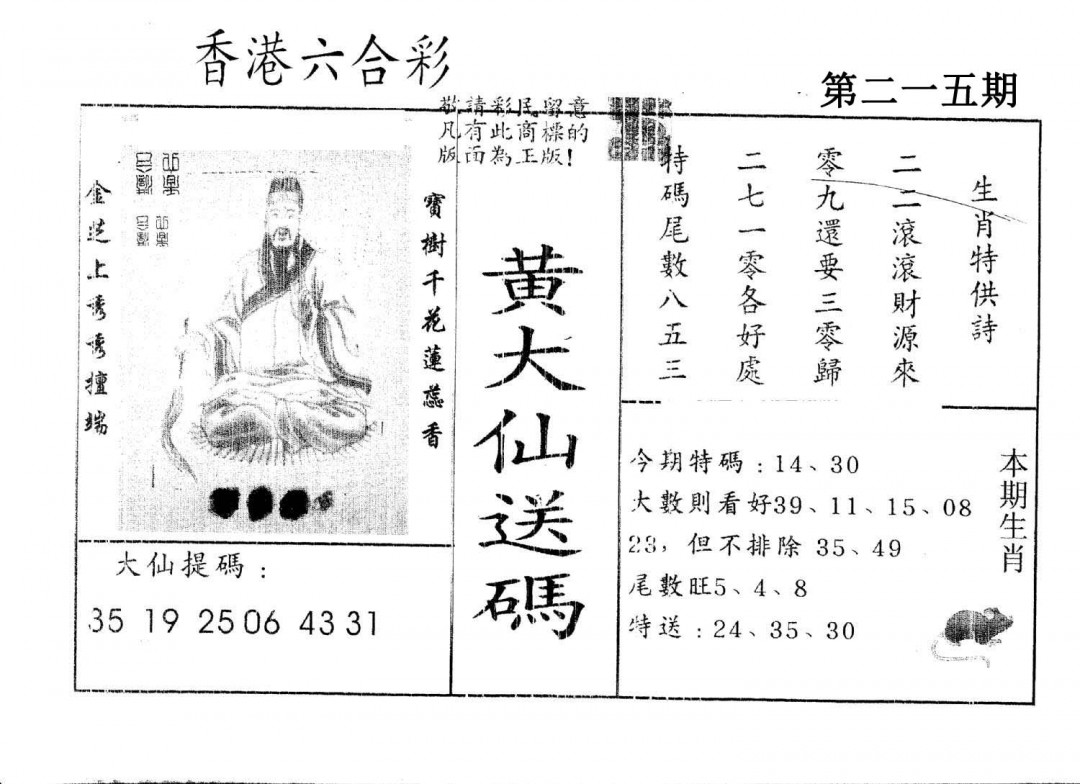 香港六合彩
第二一五期
敬請彩民留意
凡有此商標的
版面為正版！
寶樹千花蓮蕊香
金芝上誘誘擅端
黄大仙送碼
大仙提碼：
35 19 25 06 43 31
生肖特供詩
二二滾滾財源來
零九還要三零歸
二七一零各好處
特碼尾數八五三
本期生肖
今期特碼：14、30
大數則看好39、11、15、08
23，但不排除 35、49
尾數旺5、4、8
特送：24、35、30